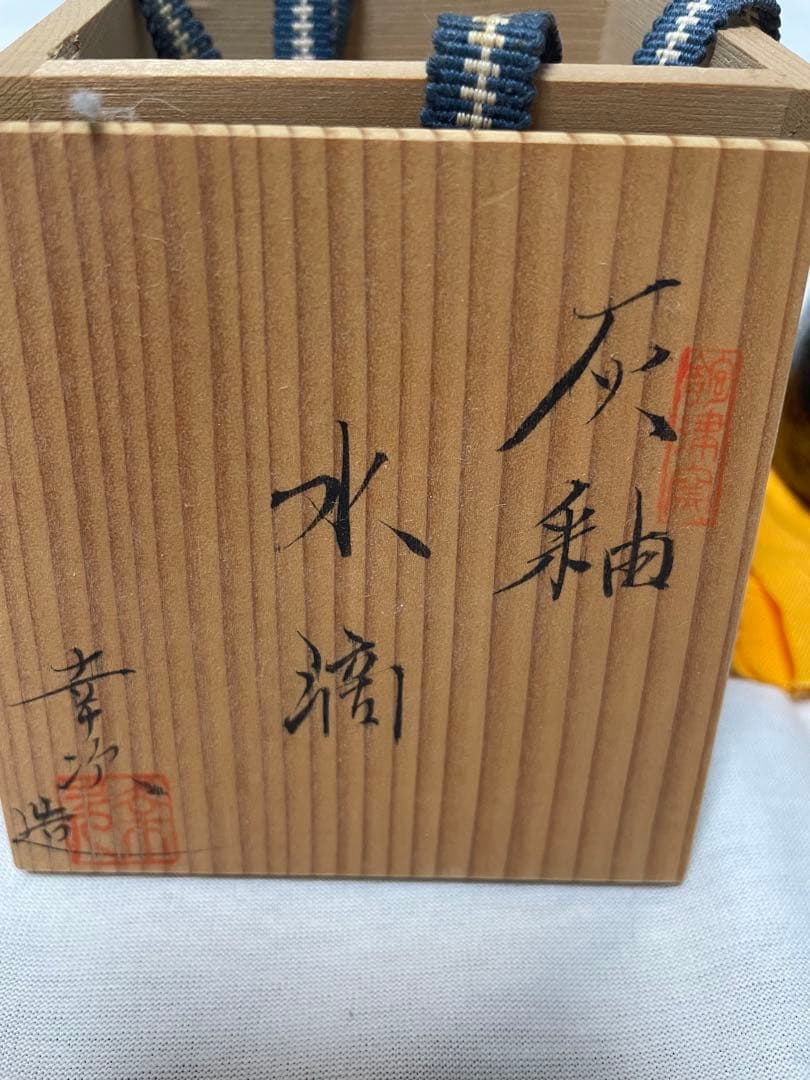 灰釉
水滴
幸次
造